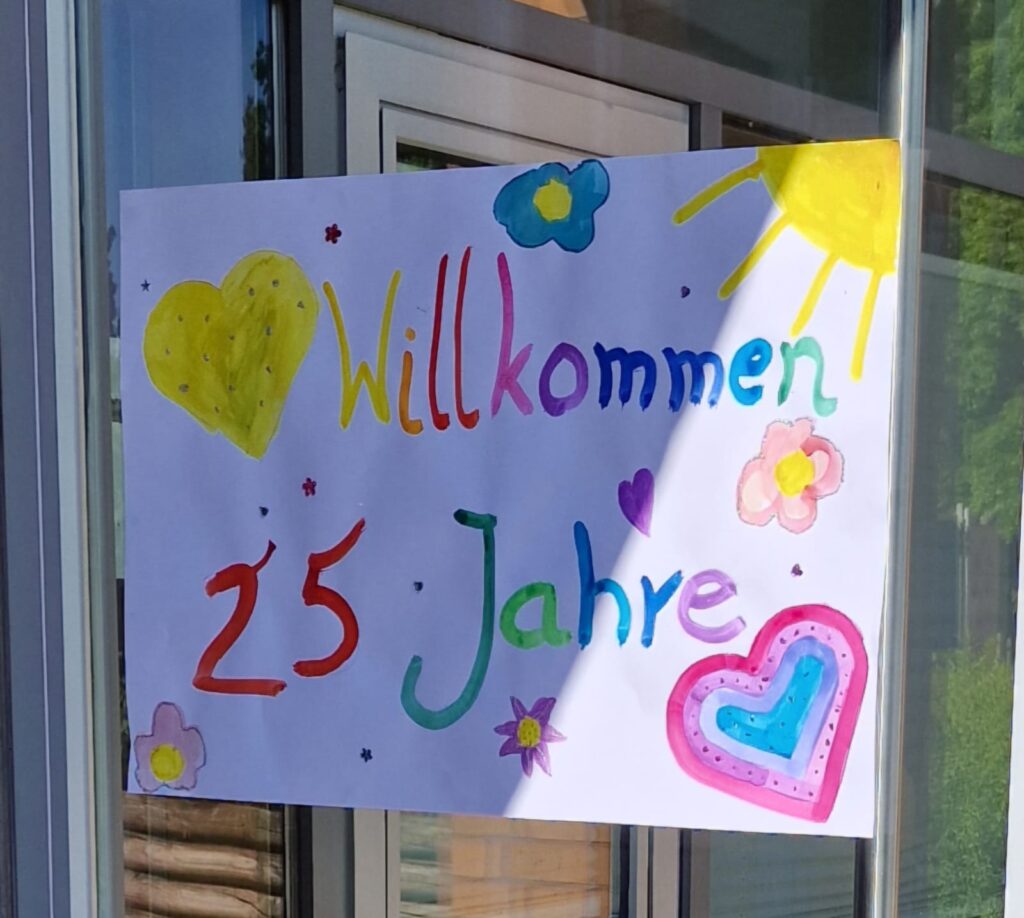 Willkommen
25 Jahre